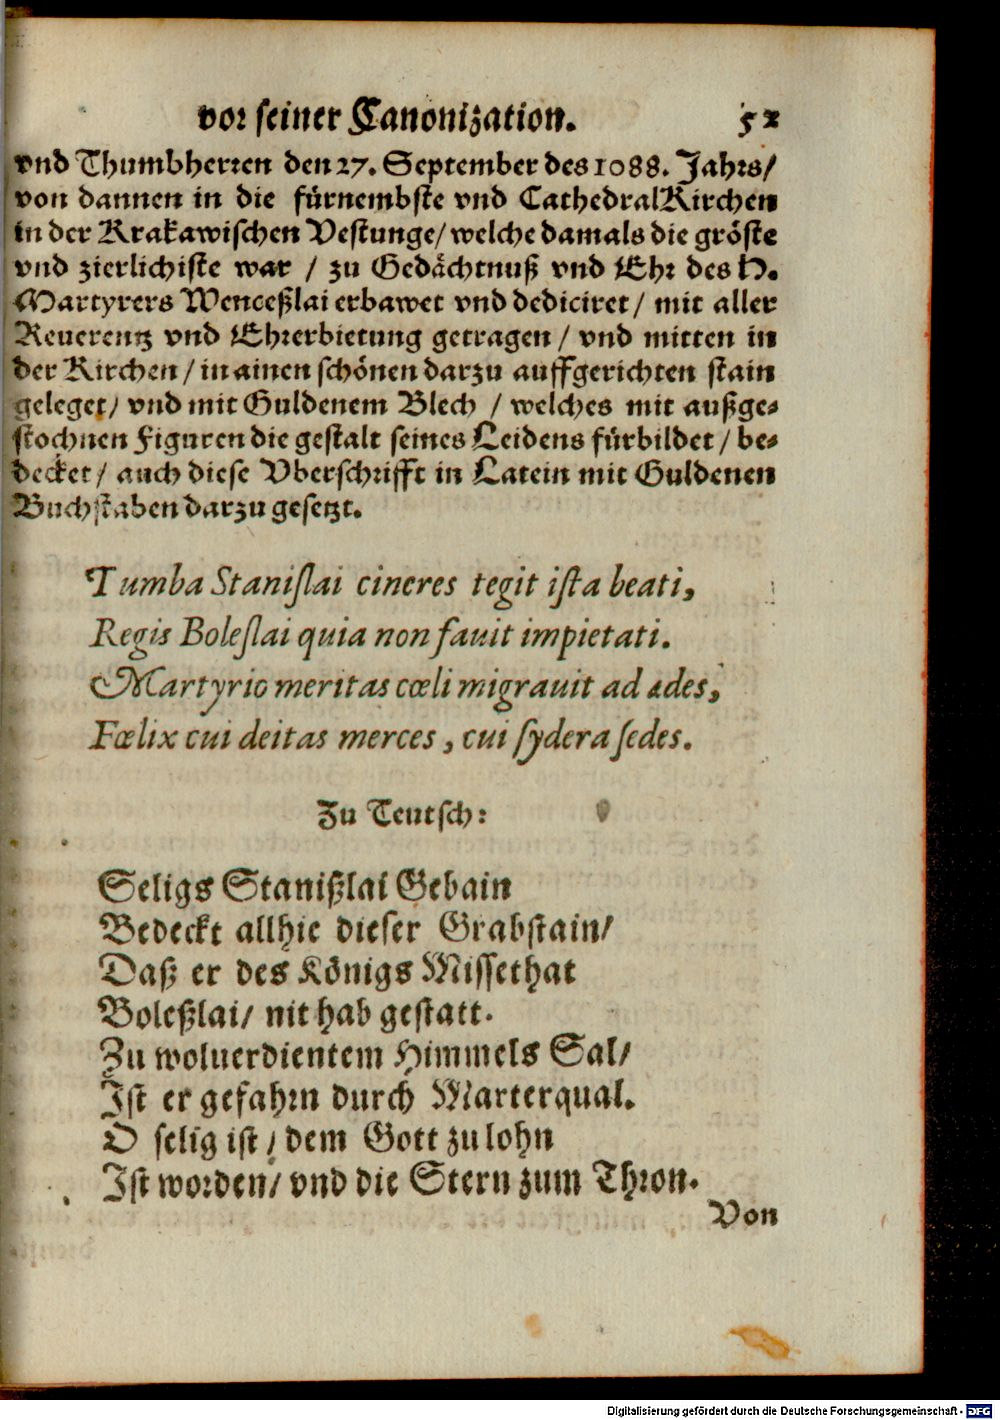 vor seiner Canonization. 52
vnd Thumbherren den 27. September des 1088. Jahrs/
von dannen in die fürnembste vnd CathedralKirchen
in der Krakawischen Vestunge/ welche damals die gröste
vnd zierlichiste war / zu Gedächtnuß vnd Ehr des H.
Martyrers Wenceßlai erbawet vnd dediciret/ mit aller
Reuerentz vnd Ehrerbietung getragen / vnd mitten in
der Kirchen / in ainen schönen darzu auffgerichten stain
geleget/ vnd mit Guldenem Blech / welches mit außge-
stochnen Figuren die gestalt seines Leidens fürbildet / be-
decket / auch diese Vberschrifft in Latein mit Guldenen
Buchstaben darzu gesetzt.
Tumba Staniſlai cineres tegit iſta beati,
Regis Boleſlai quia non fauit impietati.
Martyrio meritas cœli migrauit ad ædes,
Fœlix cui deitas merces, cui ſydera ſedes.
Zu Teutsch:
Seligs Stanißlai Gebain
Bedeckt allhie dieser Grabstain/
Daß er des Königs Missethat
Boleßlai/ nit hab gestatt.
Zu woluerdientem Himmels Sal/
Ist er gefahrn durch Marterqual.
O selig ist / dem Gott zu lohn
Ist worden/ vnd die Stern zum Thron.
Von
Digitalisierung gefördert durch die Deutsche Forschungsgemeinschaft - DFG